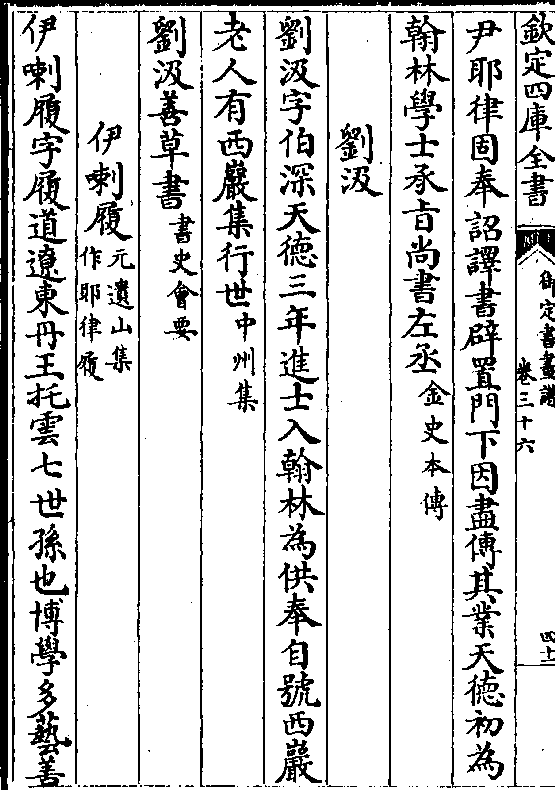 欽定四庫全書
御定書畫譜
卷三十六
四十
尹耶律固奉詔譯書辟置門下因盡傳其業天德初為
翰林學士承旨尚書左丞金史本傳
劉汲
劉汲字伯深天德三年進士入翰林為供奉自號西巖
老人有西巖集行世中州集
劉汲善草書書史會要
伊喇履元遺山集作耶律履
伊喇履字履道遼東丹王托雲七世孫也博學多藝善